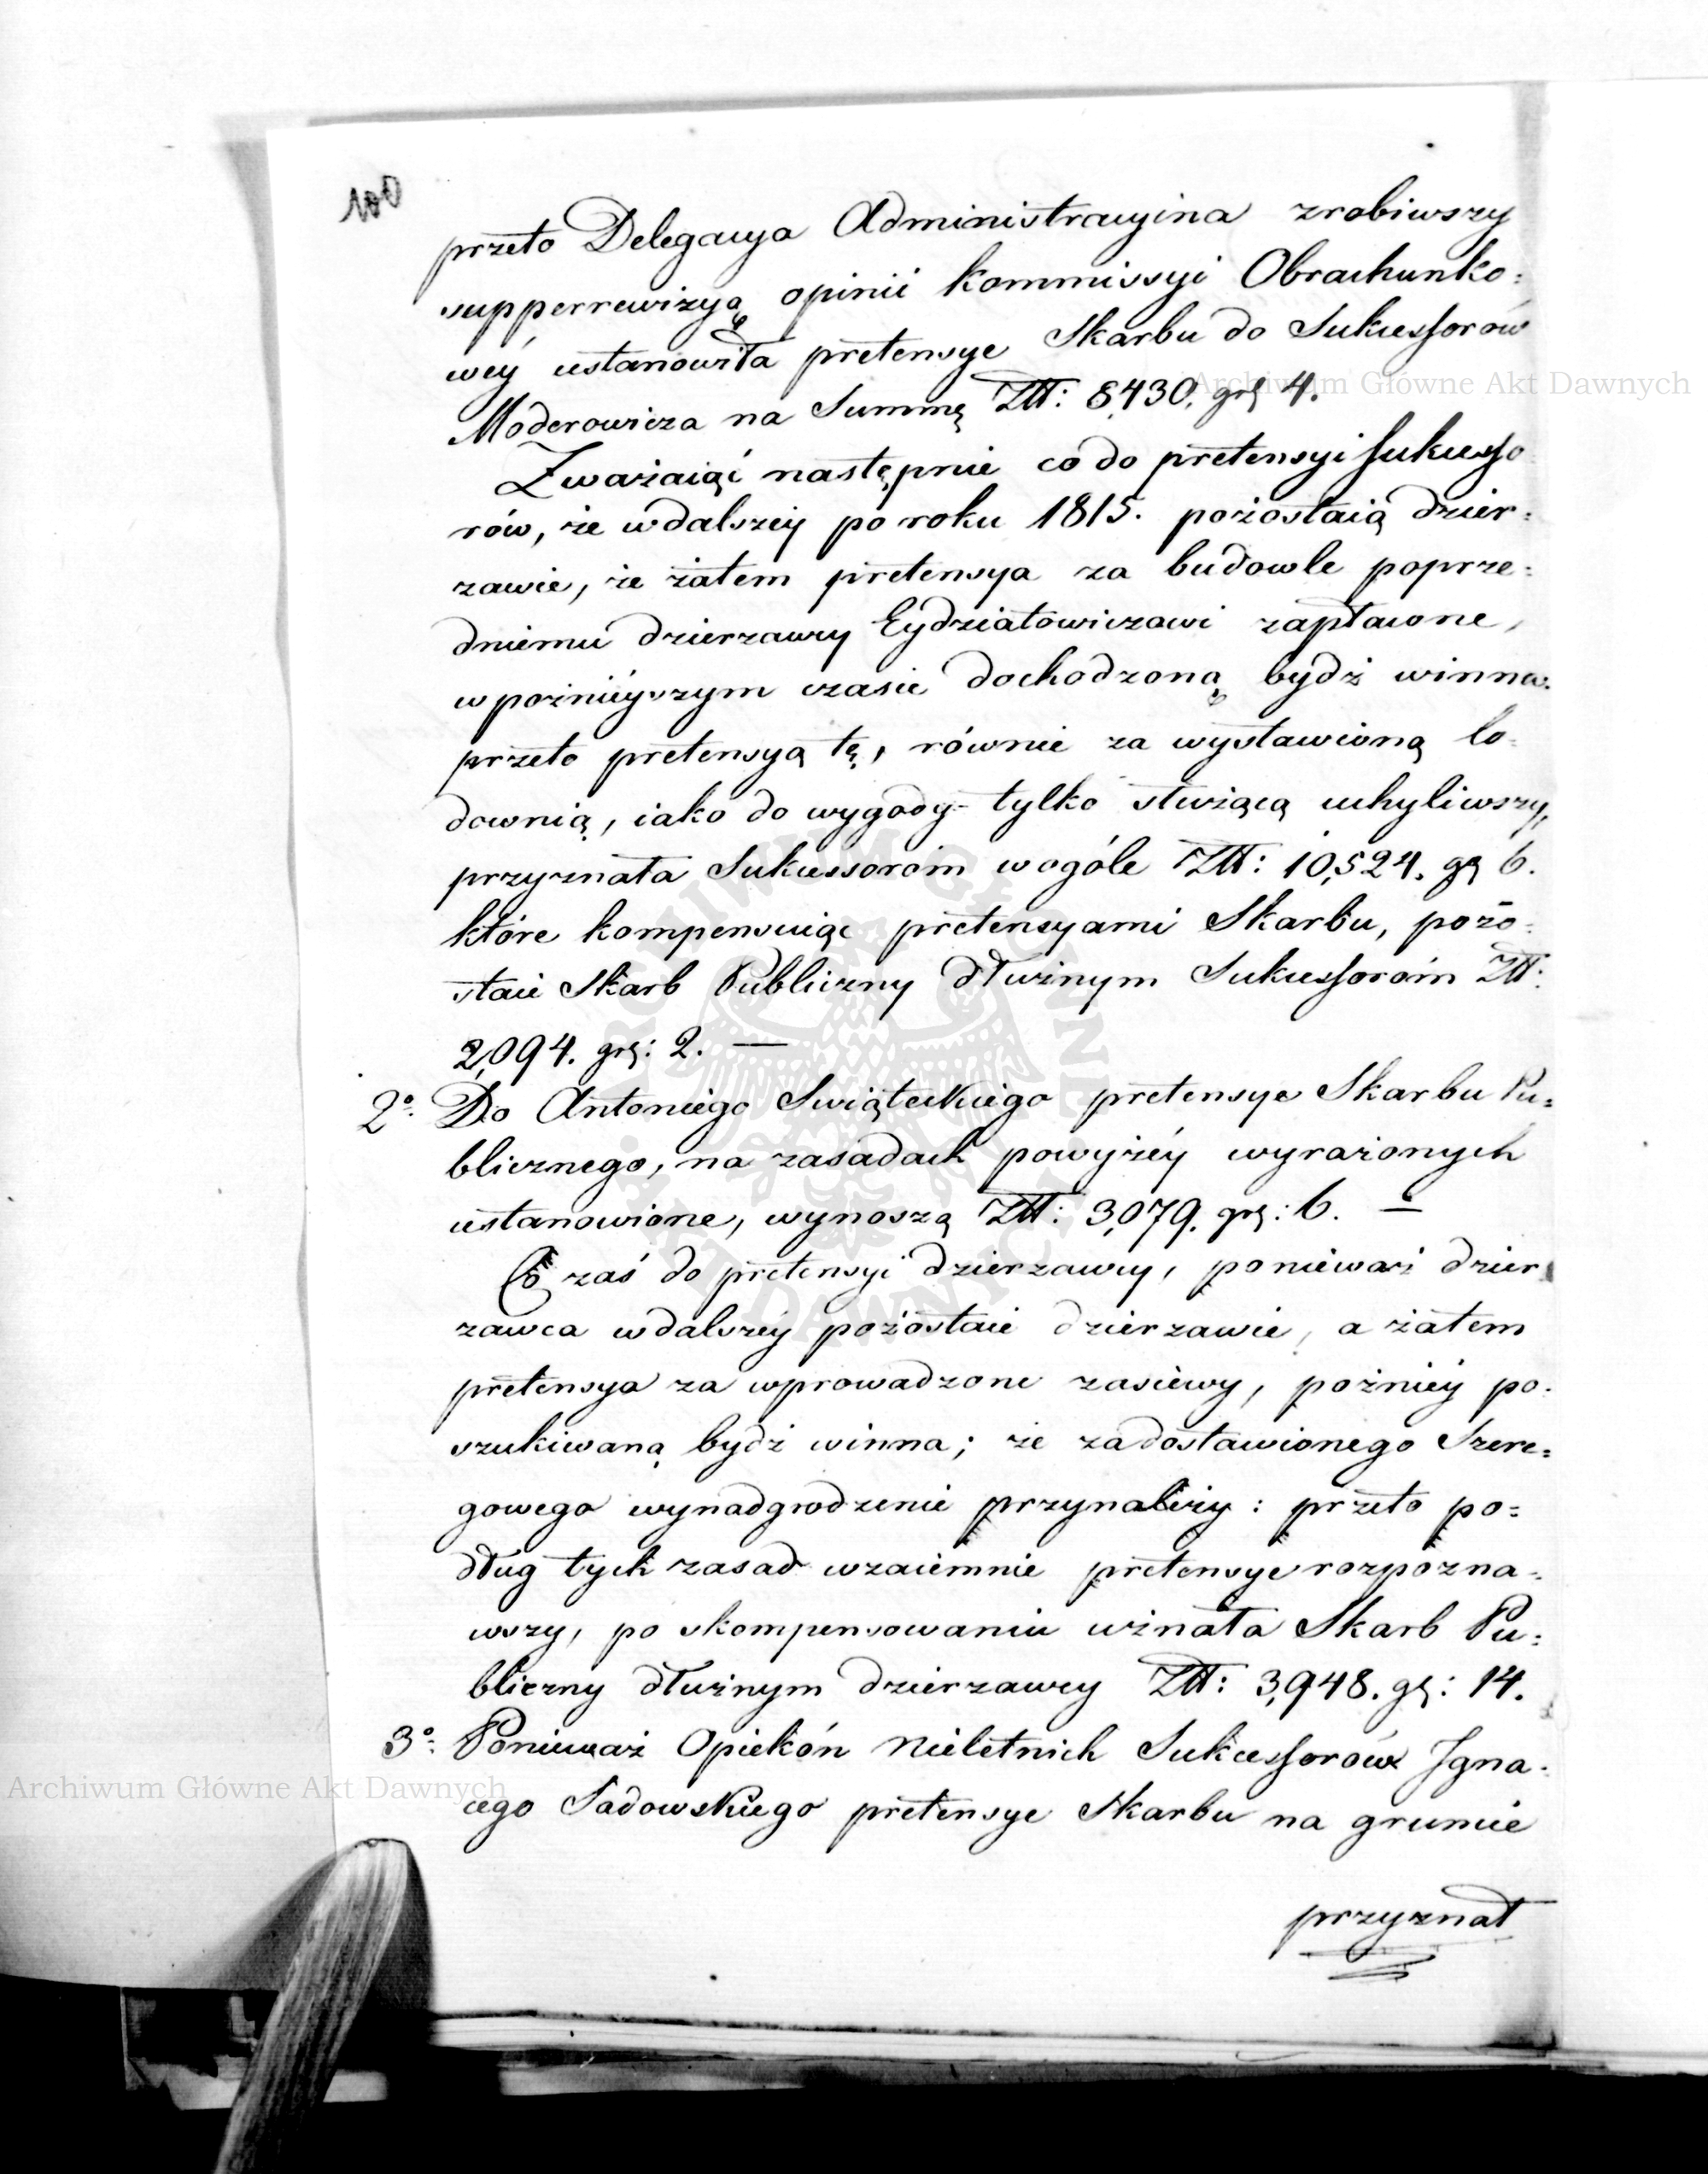 100
przeto Delegacya Administracyina zrobiwszy
supperrewizyą opinii Kommissyi Obrachunko=
wéy ustanowiła pretensye Skarbu do Sukcessorów
Moderowicza na Summę Złł: 8,430. grş 4.
Zważaiąć następnie co do pretensyi Sukcesso
rów, że w dalszéy po roku 1815. pozostaią dzier=
zawie, że zatem pretensya za budowle poprze=
dniemu dzierzawcy Eydziatowiczowi zapłacone,
w pożniéyszym czasie dochodzoną bydź winna.
przeto pretensyą tę, równie za wystawioną lo=
downią, iako do wygody tylko służącą uchyliwszy,
przyznała Sukcessoróm w ogóle Złł: 10,524. gş 6.
które kompensuiąc pretensyami Skarbu, pozo=
staie Skarb Publiczny dłużnym Sukcessoróm Złł:
2,094. grş: 2. —
2o: Do Antoniego Swiąteckiego pretensye Skarbu Pu=
blicznego, na zasadach powyżéy wyrażonych
ustanowione, wynoszą Złł: 3,079. grş: 6. —
Co zaś do pretensyi dzierzawcy, ponieważ dzier
zawca w dalszéy pozostaie dzierzawie, a zatem
pretensya za wprowadzone zasiewy, pożniéy po=
szukiwaną bydź winna; że za dostawionego Szere=
gowego wynadgrodzenie przynależy: przeto po=
dług tych zasad wzaiemnie pretensye rozpozna=
wszy, po skompensowaniu uznała Skarb Pu=
bliczny dłużnym dzierzawcy Złł: 3,948. gş: 14.
3o: Ponieważ Opiekón Nieletnich Sukcessorów Igna=
cego Sadowskiego pretensye Skarbu na gruncie
przyznał
Archiwum Główne Akt Dawnych
Archiwum Główne Akt Dawnych
ARCHIWUM GŁÓWNE AKT DAWNYCH